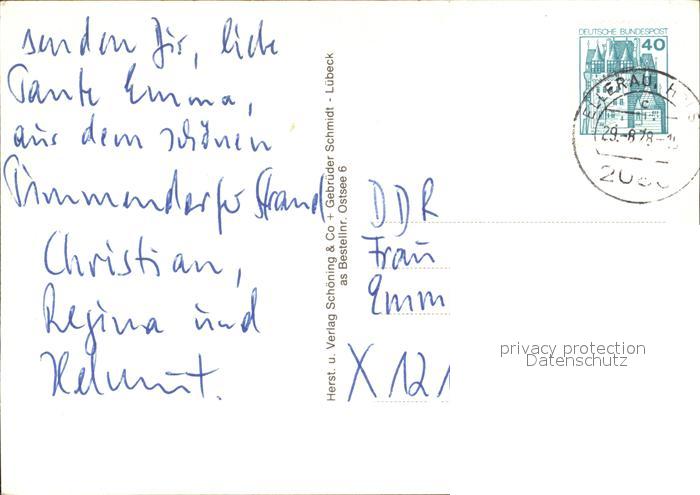 senden Dir, liebe
Tante Emma,
aus dem schönen
Timmendorfer Strand
Christian,
Regina und
Helmut.
Herst. u. Verlag Schöning & Co + Gebrüder Schmidt - Lübeck
as Bestellnr. Ostsee 6
DEUTSCHE BUNDESPOST
40
ELLERAU, H
c
29.-8.78
DDR
Frau
Emm
X 121
privacy protection
Datenschutz